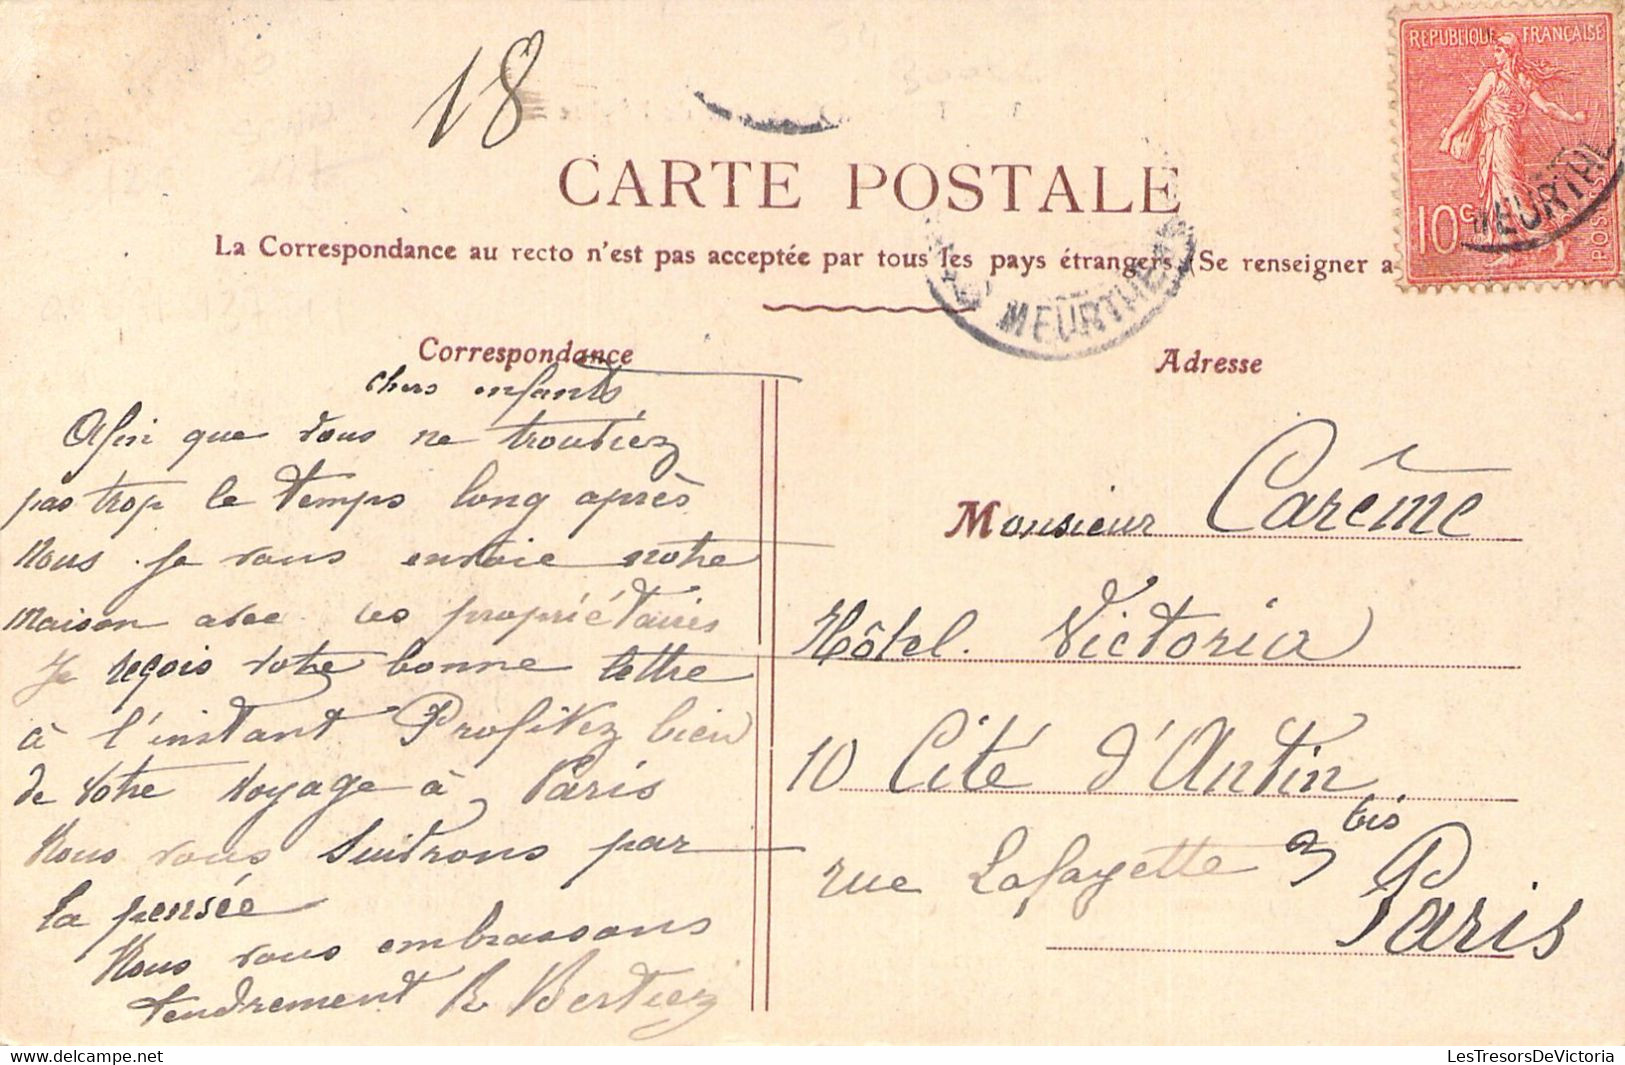 18
CARTE POSTALE
La Correspondance au recto n'est pas acceptée par tous les pays étrangers (Se renseigner a
REPUBLIQUE FRANÇAISE
10c
POSTES
MEURTHE
MEURTHE
Correspondance
chers enfants
Afin que vous ne trouviez
pas trop le temps long après
nous je vous envoie notre
maison avec les propriétaires
Je reçois votre bonne lettre
à l'instant Profitez bien
de votre voyage à Paris
Nous vous suivrons par
la pensée
Nous vous embrassons
tendrement R Bertiez
Adresse
Monsieur Carême
Hôtel Victoria
10 Cité d'Antin
rue Lafayette 3 bis
Paris
LesTresorsDeVictoria